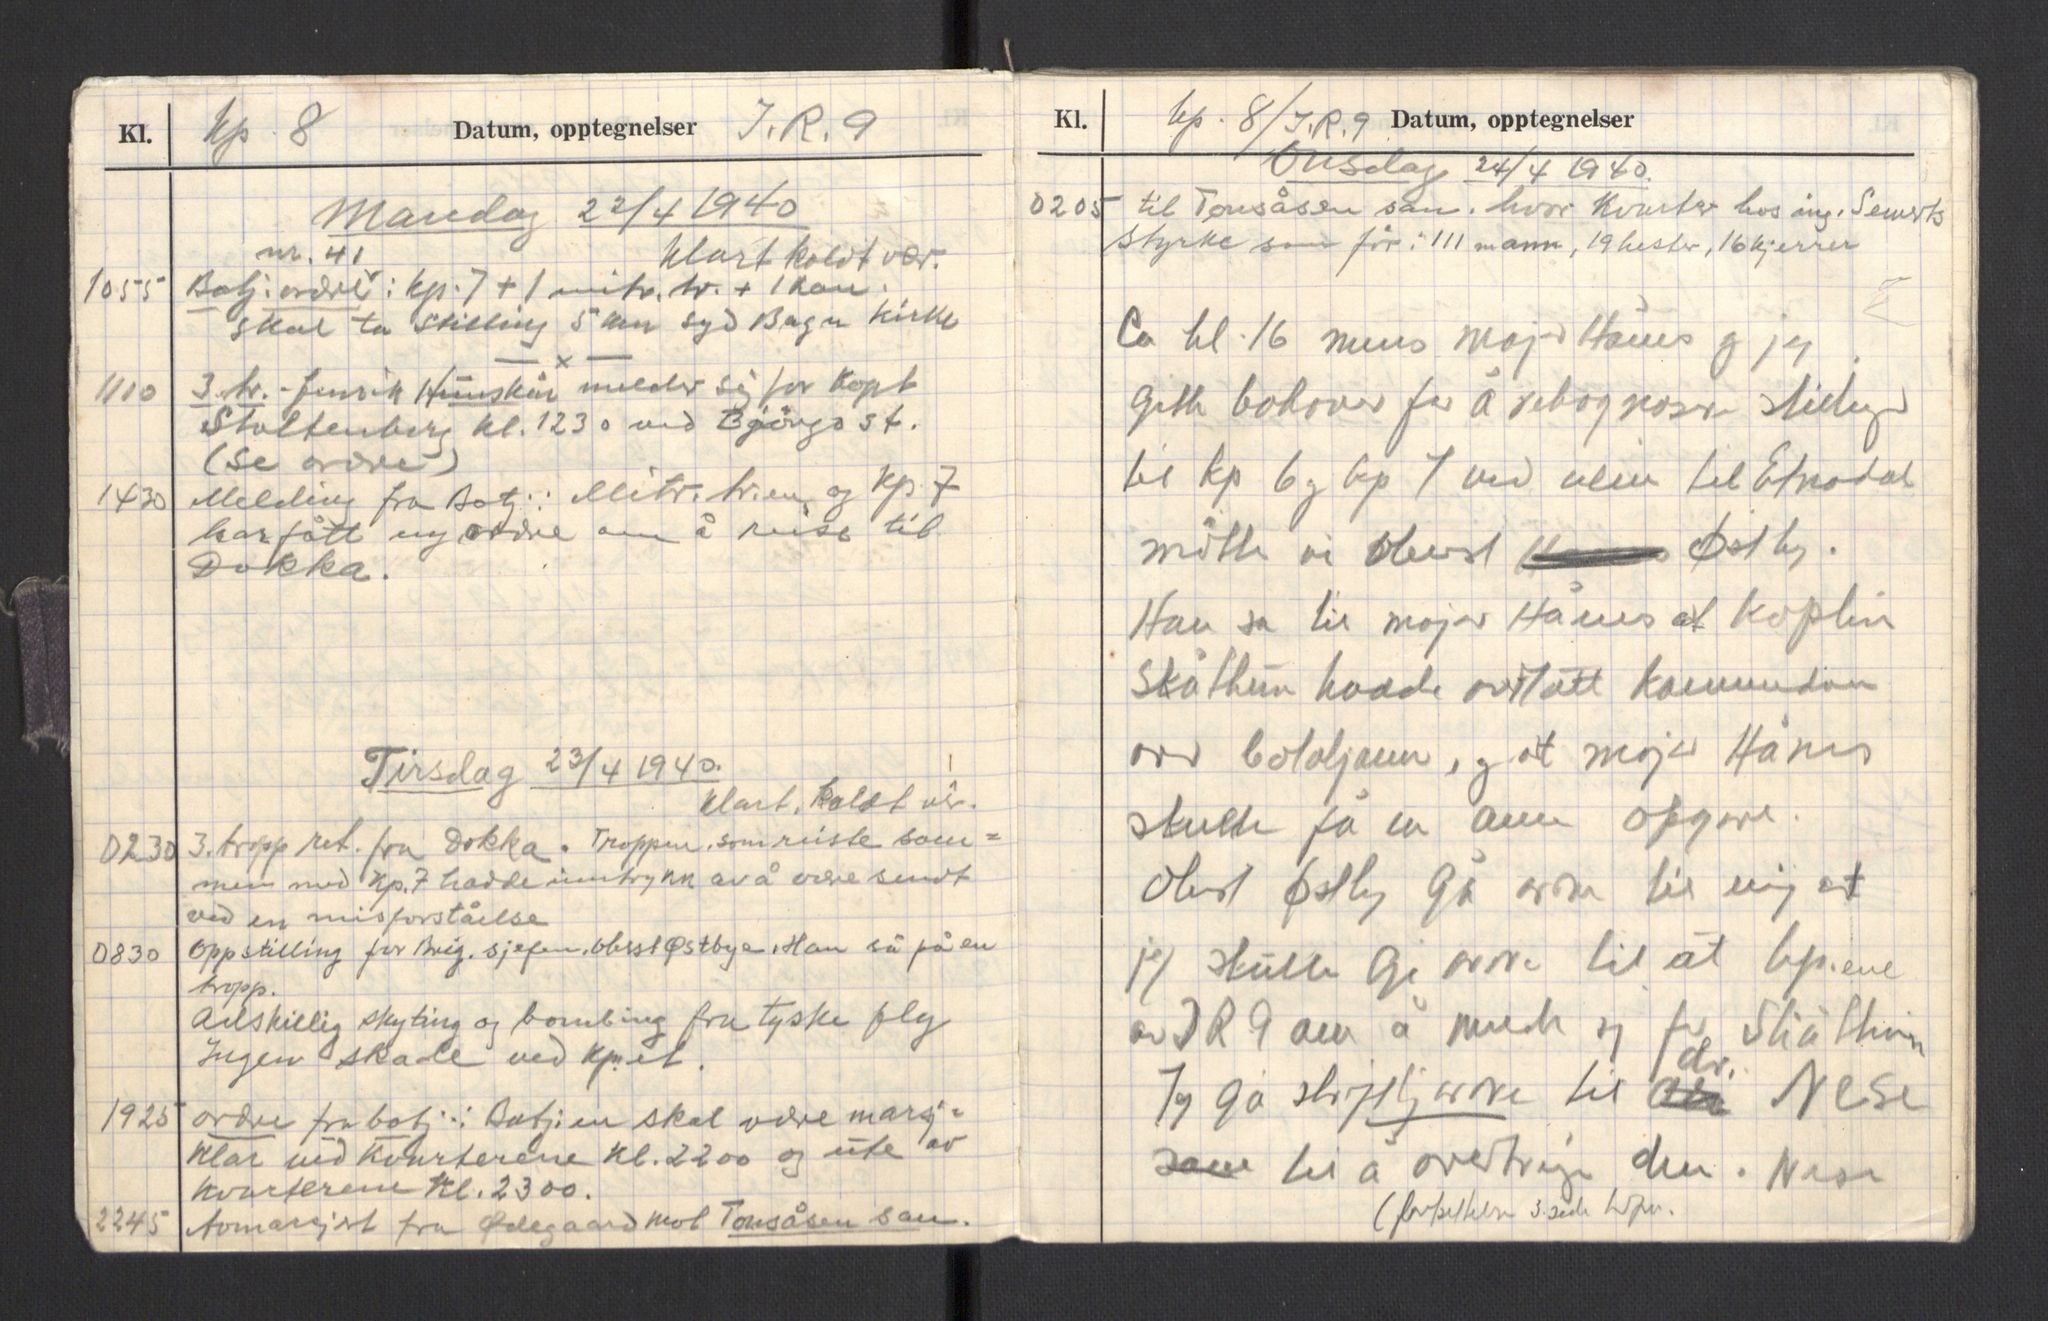 Kl. Kp 8 Datum, opptegnelser I.R. 9
Mandag 22/4 1940
nr. 41 Klart koldt vær.
1055 Batj. ordre: Kp. 7 + 1 mitr. tr. + 1 kan.
skal ta stilling 5 km syd Bagn kirke
— x —
1110 3. tr. - fenrik Hunskår melder sig for Kapt
Stoltenberg kl. 1230 ved Bjørgo st.
(se ordre)
1430 Melding fra Batj.: Mitr. tr.en og Kp. 7
har fått ny ordre om å reise til
Dokka.
Tirsdag 23/4 1940.
Klart, koldt vær.
0230 3. tropp ret. fra Dokka. Troppen, som reiste sam=
men med Kp. 7 hadde inntrykk av å være sendt
ved en misforståelse
0830 Oppstilling for Brig. sjefen, oberst Østbye. Han så på en
tropp.
Adskillig skyting og bombing fra tyske fly
Ingen skade ved Kp.et.
1925 Ordre fra batj.: Batj.en skal være marsj=
klar ved kvarterene Kl. 2200 og ute av
kvarterene Kl. 2300.
2245 Avmarsjert fra Ødegaard mot Tonsåsen san.
Kl. Kp. 8/I.R. 9 Datum, opptegnelser
Onsdag 24/4 1940.
0205 til Tonsåsen san. hvor kvarter hos ing.
Styrke som før: 111 mann, 19 hester, 16 kjerrer
Ca kl. 16 mens major Hånes og jeg
gikk bakover for å rekognosere stillinger
til Kp 6 og Kp 7 ved veien til Etnedal
møtte vi Oberst Østby.
Han sa til major Hånes at Kaptein
Skåthun hadde overtatt kommandoen
over bataljonen, og at major Hånes
skulle få en annen opgave.
Oberst Østby ga ordre til mig at
jeg skulle gi ordre til at kp.ene
av IR 9 om å melde sig for Skåthun
Jeg ga skriftlig ordre til dr. Nese
til å overbringe den. Nese
(fortsettelse 3. side